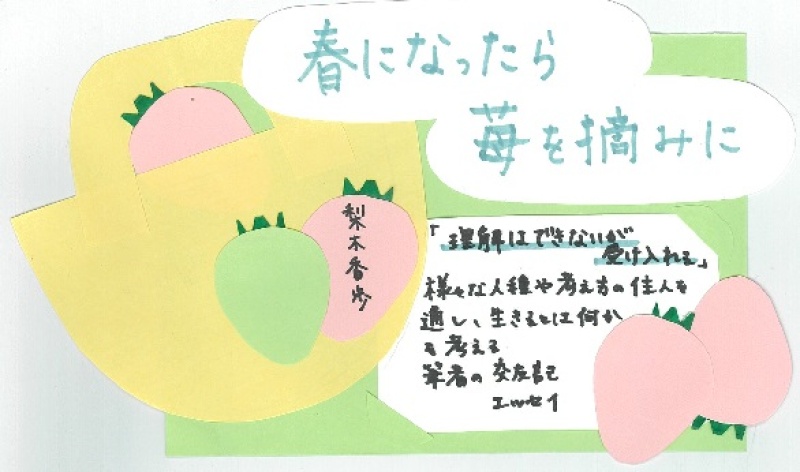 春になったら
苺を摘みに
梨木香歩
「理解はできないが
受け入れる」
様々な人種や考え方の住人を
通し、生きるとは何か
を考える
筆者の交友記
エッセイ